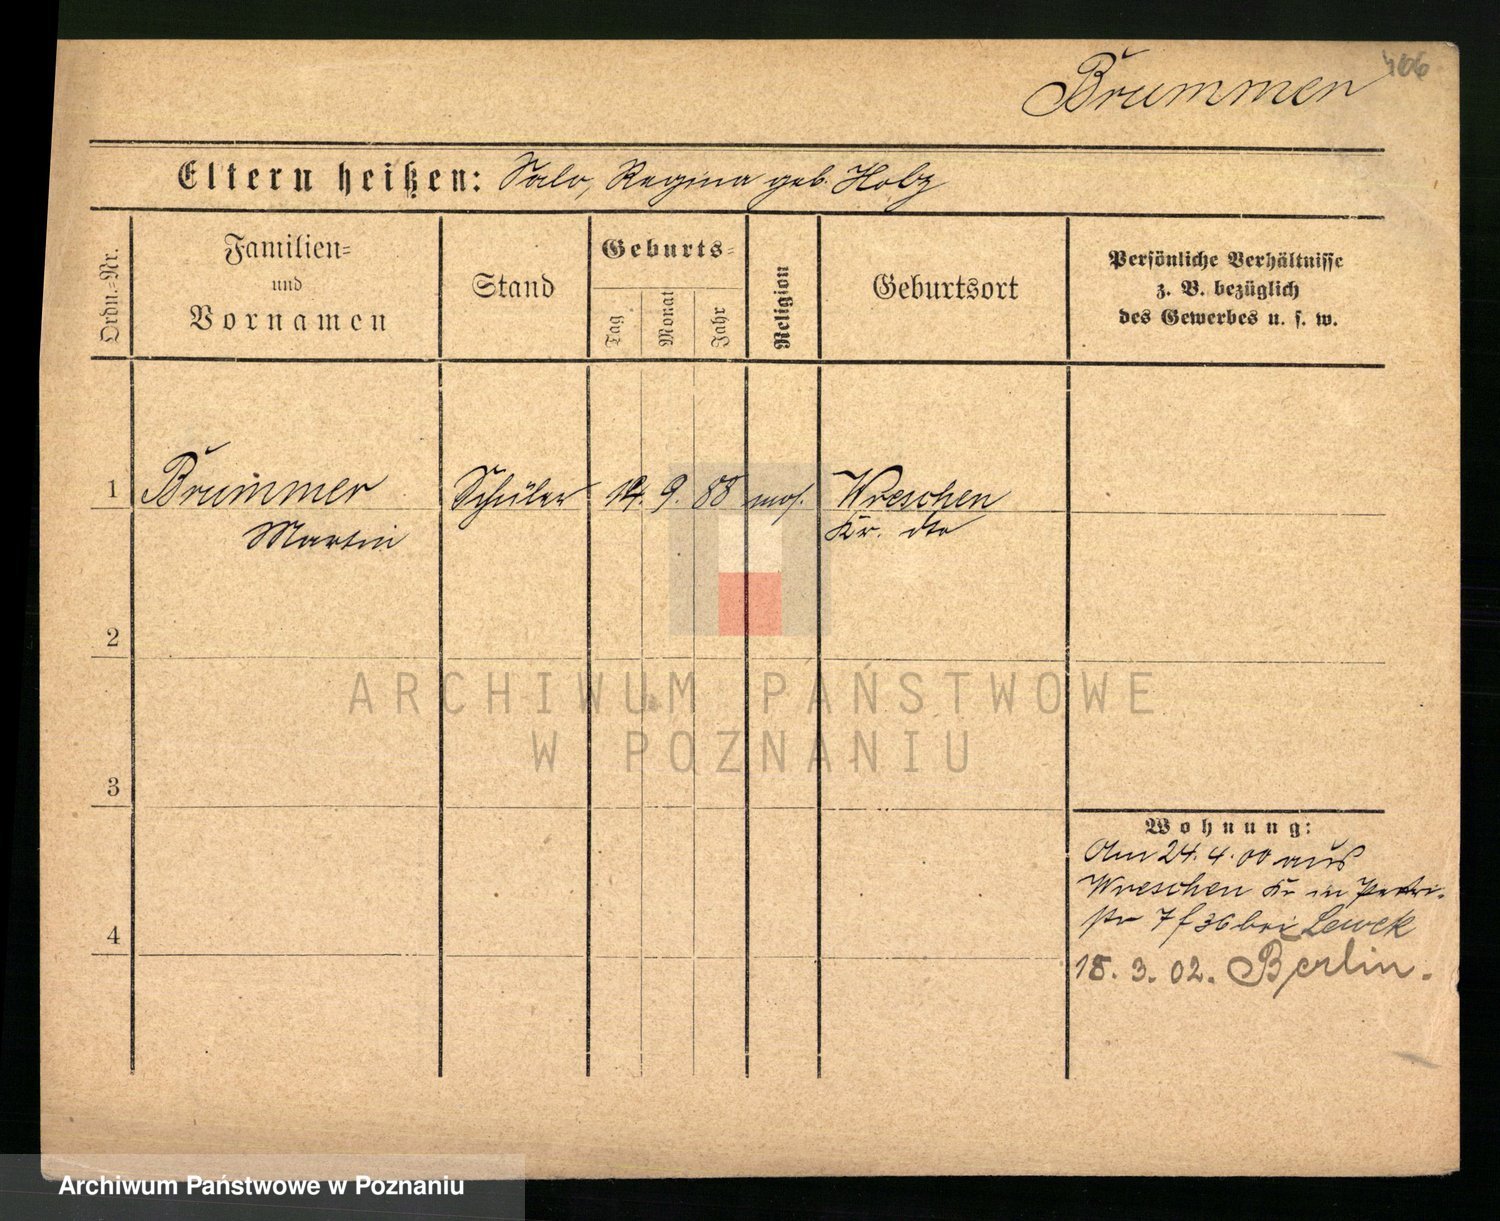 Brummer
Eltern heißen: Salo, Regina geb. Holz
Ordn.-Nr.
Familien-
und
Vornamen
Stand
Geburts-
Tag
Monat
Jahr
Religion
Geburtsort
Persönliche Verhältnisse
z. B. bezüglich
des Gewerbes u. s. w.
1 Brummer Schüler 14. 9. 88 mos. Wreschen
Martin Kr. dto
2
ARCHIWUM PAŃSTWOWE
W POZNANIU
3
Wohnung:
Am 24. 4. 00 aus
Wreschen Kr in Petri-
str 7 f 36 bei Lewek
4
18. 3. 02. Berlin.
Archiwum Państwowe w Poznaniu